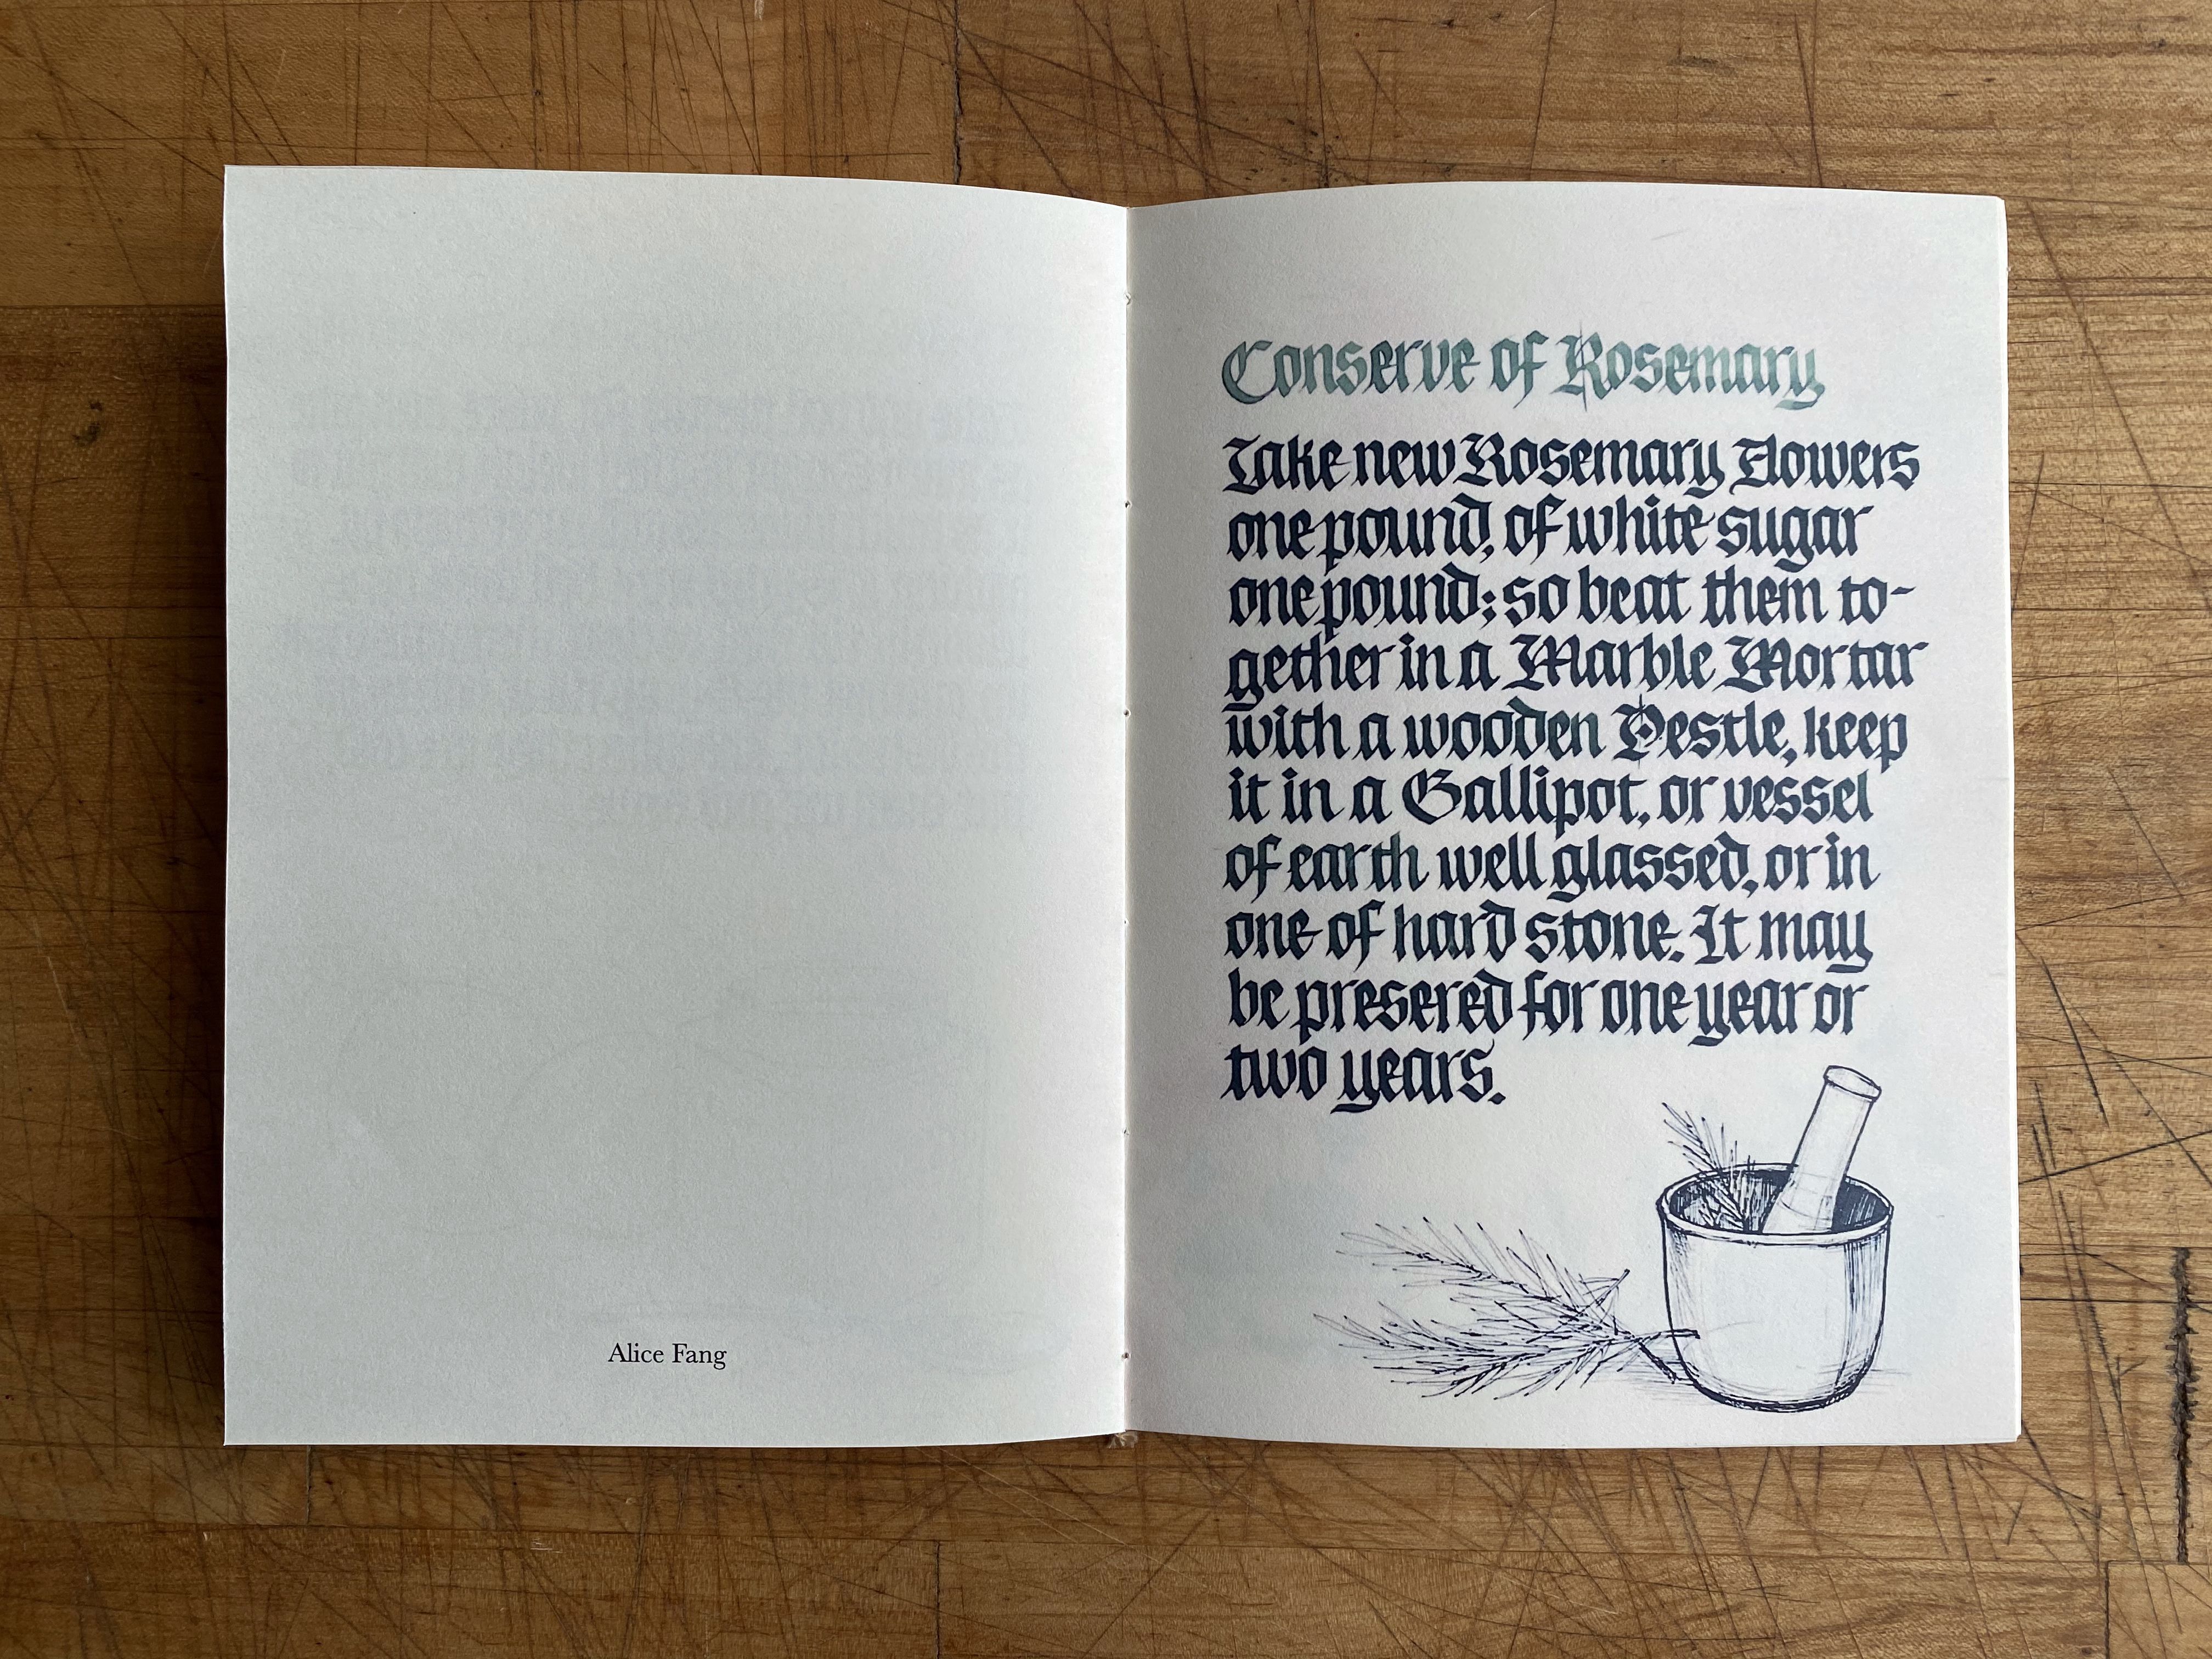 Alice Fang
Conserve of Rosemary
Take new Rosemary Flowers
one pound, of white sugar
one pound; so beat them to-
gether in a Marble Mortar
with a wooden Pestle, keep
it in a Gallipot, or vessel
of earth well glassed, or in
one of hard stone. It may
be presered for one year or
two years.